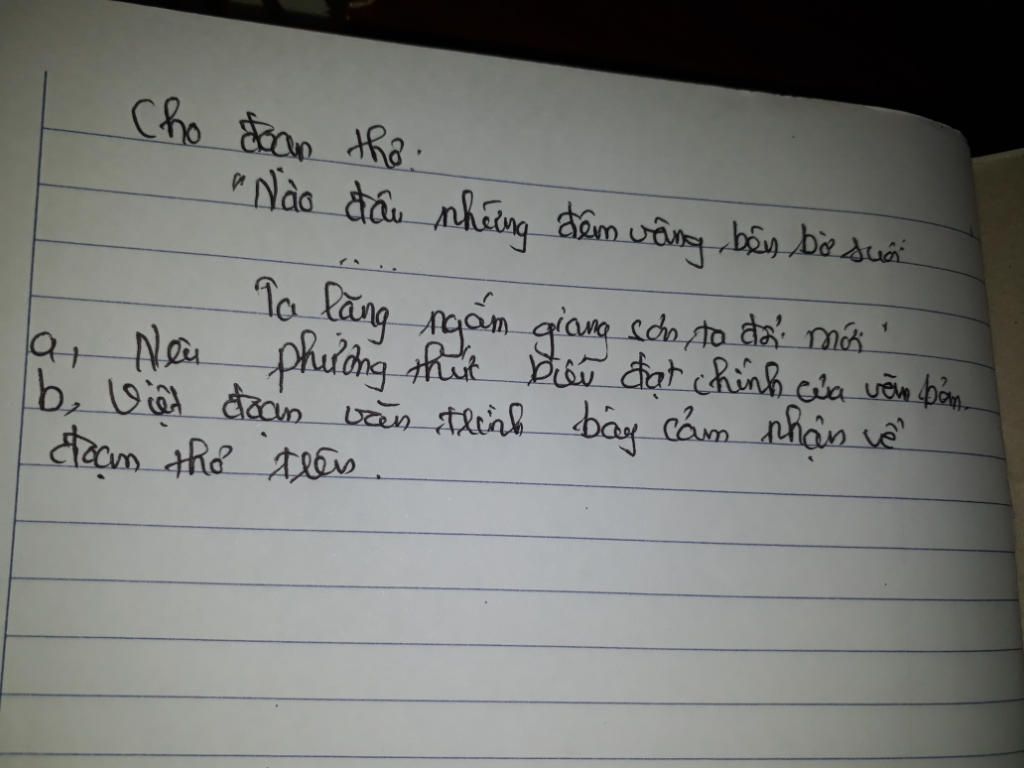 Cho đoạn thơ:
"Nào đâu những đêm vàng bên bờ suối
.....
Ta lặng ngắm giang sơn ta đổi mới"
a, Nêu phương thức biểu đạt chính của văn bản.
b, Viết đoạn văn trình bày cảm nhận về
đoạn thơ trên.